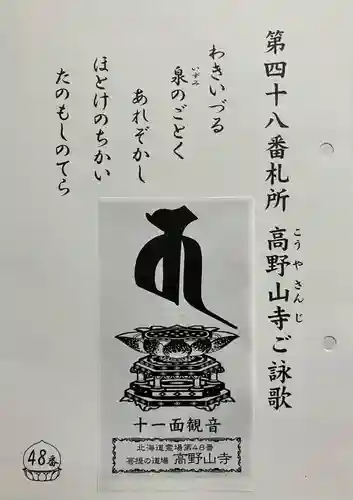 第四十八番札所 高野山寺ご詠歌
こうやさんじ
わきいづる
泉のごとく
いずみ
あれぞかし
ほとけのちかい
たのもしのてら
十一面観音
北海道霊場第48番
菩提の道場 高野山寺
48番